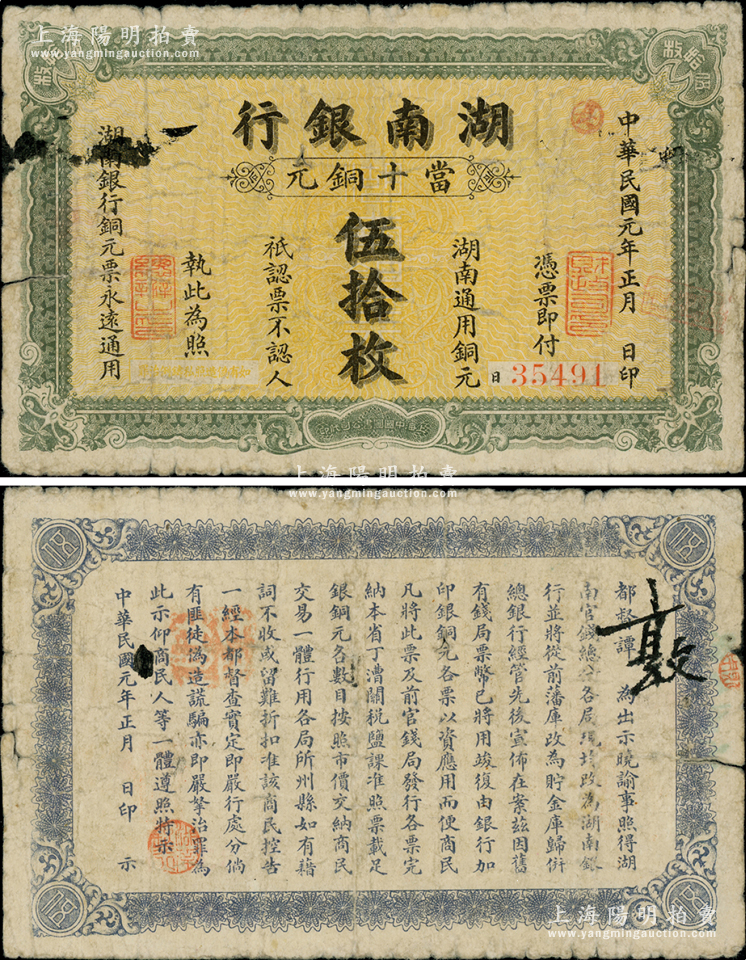 上海陽明拍賣
www.yangmingauction.com
湖南銀行
當十銅元
伍拾枚
中華民國元年正月　日印
憑票即付
湖南通用銅元
祇認票不認人
執此為照
湖南銀行銅元票永遠通用
日 35491
上海陽明拍賣
www.yangmingauction.com
都督譚　為出示曉諭事照得湖
南官錢總分各局現均改為湖南銀
行並將從前藩庫改為貯金庫歸併
總銀行經管先後宣佈在案茲因舊
有錢局票幣已將用竣復由銀行加
印銀銅元各票以資應用而便商民
凡將此票及前官錢局發行各票完
納本省丁漕關稅鹽課准照票載足
銀銅元各數目按照市價交納商民
交易一體行用各局所州縣如有藉
詞不收或留難折扣准該商民控告
一經本都督查實定即嚴行處分倘
有匪徒偽造謊騙亦即嚴拏治罪為
此示仰商民人等一體遵照特示
中華民國元年正月　日印　示
上海陽明拍賣
www.yangmingauction.com